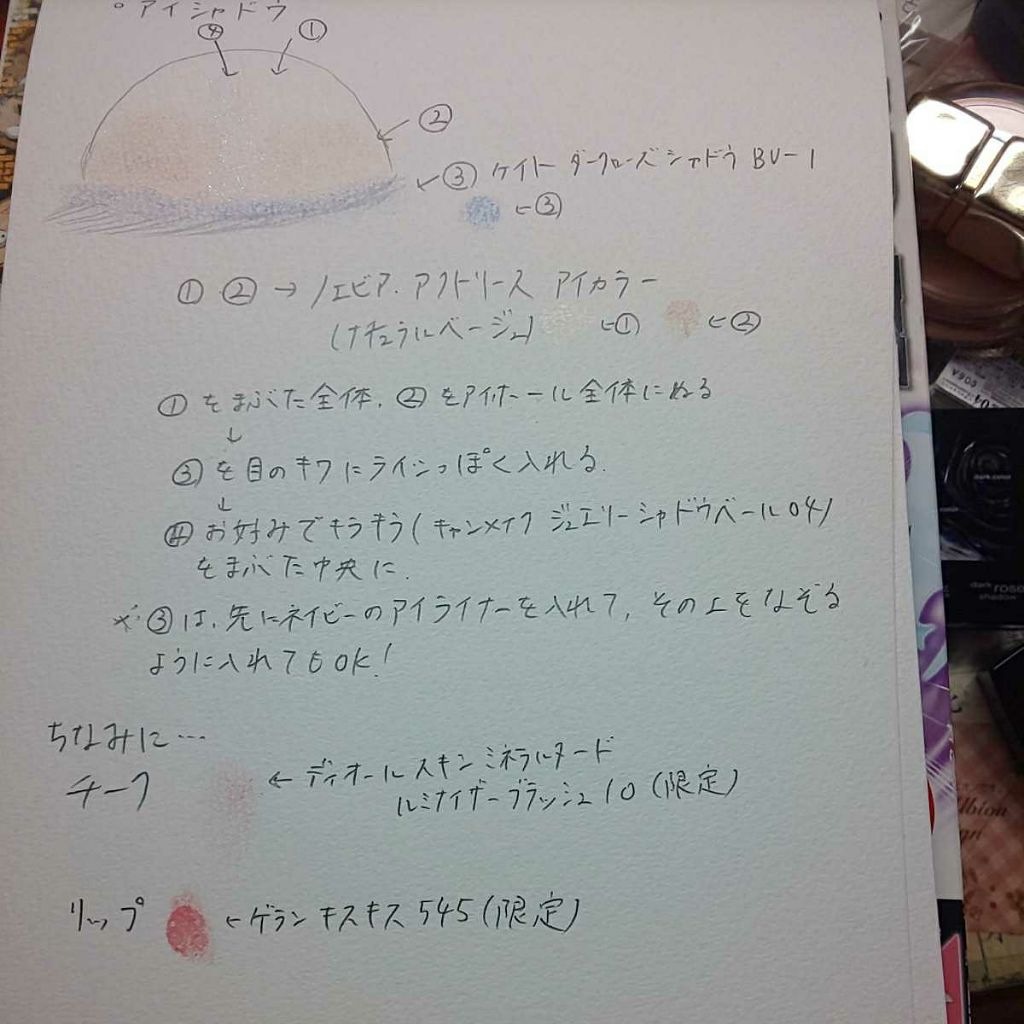 ○アイシャドウ
④ ①
②
③ ケイト ダークローズシャドウ BU-1
←③
① ② → ノエビア.アクトリース アイカラー
(ナチュラルベージュ) ←① ←②
①をまぶた全体.②をアイホール全体にぬる
↓
③を目のキワにラインっぽく入れる.
↓
④お好みでキラキラ(キャンメイク ジュエリーシャドウベール04)
をまぶた中央に.
※③は、先にネイビーのアイライナーを入れて、その上をなぞる
ように入れてもOK!
ちなみに…
チーク ← ディオールスキン ミネラルヌード
ルミナイザーブラッシュ10(限定)
リップ ←ゲラン キスキス 545(限定)
dark rose
shadow